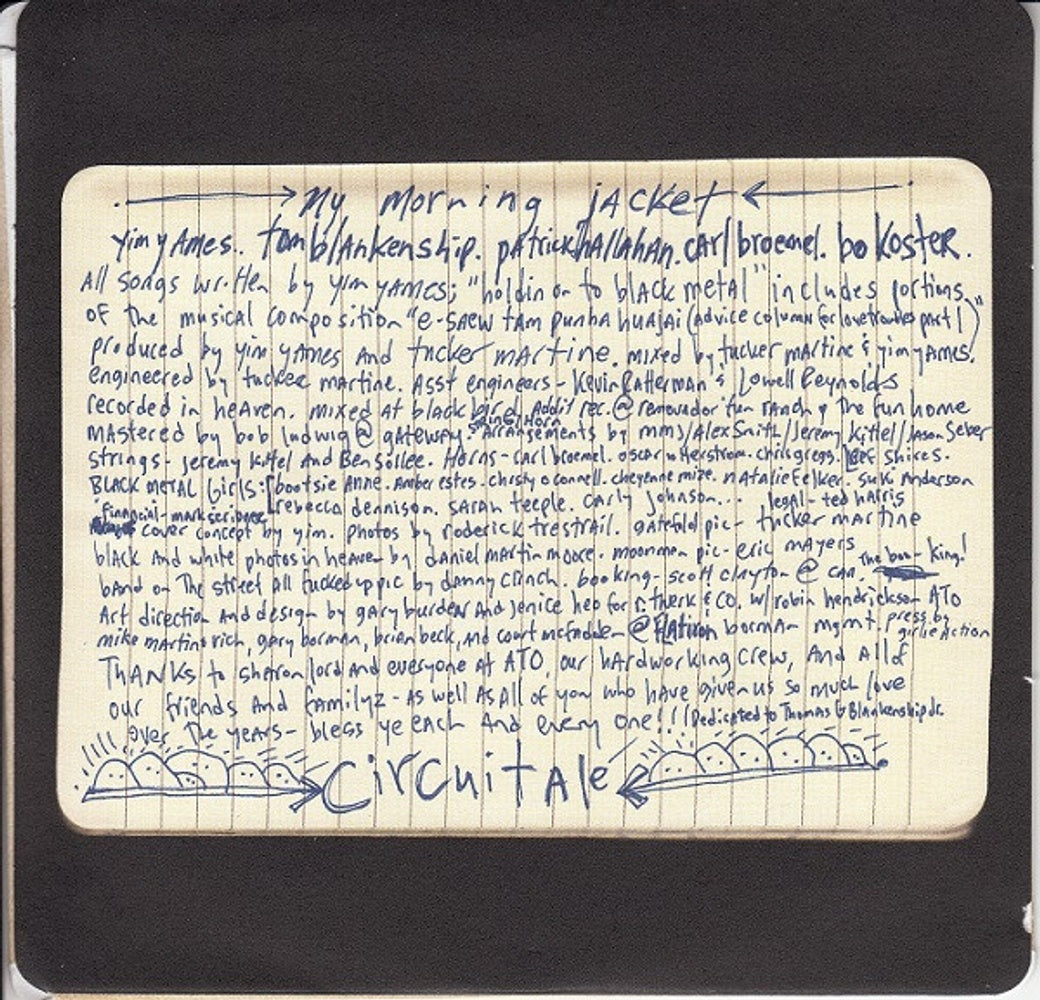 My morning jacket
yim yAmes. tom blankenship. patrick hallahan. carl broemel. bo koster.
All songs written by yim yAmes; "holdin on to black metal" includes portions
of the musical composition "e-saew tam punha huajai (advice column for love troubles part 1)"
produced by yim yAmes and tucker martine. mixed by tucker martine & yim yAmes.
engineered by tucker martine. Asst engineers - Kevin Ratterman & Lowell Reynolds
recorded in heaven. mixed at blackbird. Addit rec. @ removador fun ranch & The funhome
string/Horn
mastered by bob ludwig @ gateway. arrangements by mmj/Alex Smith/Jeremy Kittel/Jason Seber
strings - jeremy kittel and Ben Sollee. Horns - carl broemel. oscar utterstrom. chris gregg. Leef Shires.
BLACK METAL Girls: [bootsie Anne. Amber estes. christy o connell. cheyenne mize. natalie felker. suki Anderson
rebecca dennison. sarah teeple. carly johnson... legal - ted harris
financial - mark scribner
cover concept by yim. photos by roderick trestrail. gatefold pic - tucker martine
black and white photos in heaven by daniel martin moore. moonman pic - eric mayers
band on The street all fucked up pic by danny clinch. booking - scott clayton @ caa. The boo-king!
Art direction and design by gary burden and jenice heo for r. twerk & CO. w/ robin hendrickson ATO
mike martinovich, gary borman, brian beck, and court mcfadden @ Flatiron borman mgmt. press by
girlie Action
THANKS to sharon lord and everyone at ATO, our hardworking crew, and all of
our friends and familyz - as well as all of you who have given us so much love
over The years - bless ye each and every one!!! Dedicated to Thomas G Blankenship dr.
CircuitAle